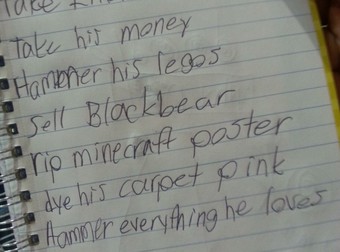 Take
Take his money
Hammer his legos
Sell Blackbear
rip minecraft poster
dye his carpet pink
Hammer everything he loves